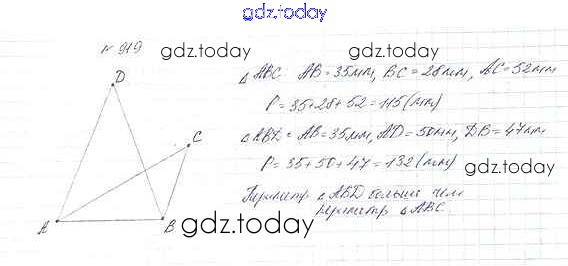 gdz.today
№ 919
gdz.today
gdz.today
△ABC AB=35мм, BC=28мм, AC=52мм
P=35+28+52=115(мм)
△ABD = AB=35мм, AD=50мм, DB=47мм
P=35+50+47=132(мм)
gdz.today
Периметр △ABD больше чем
периметр △ABC.
D
C
A
B
gdz.today